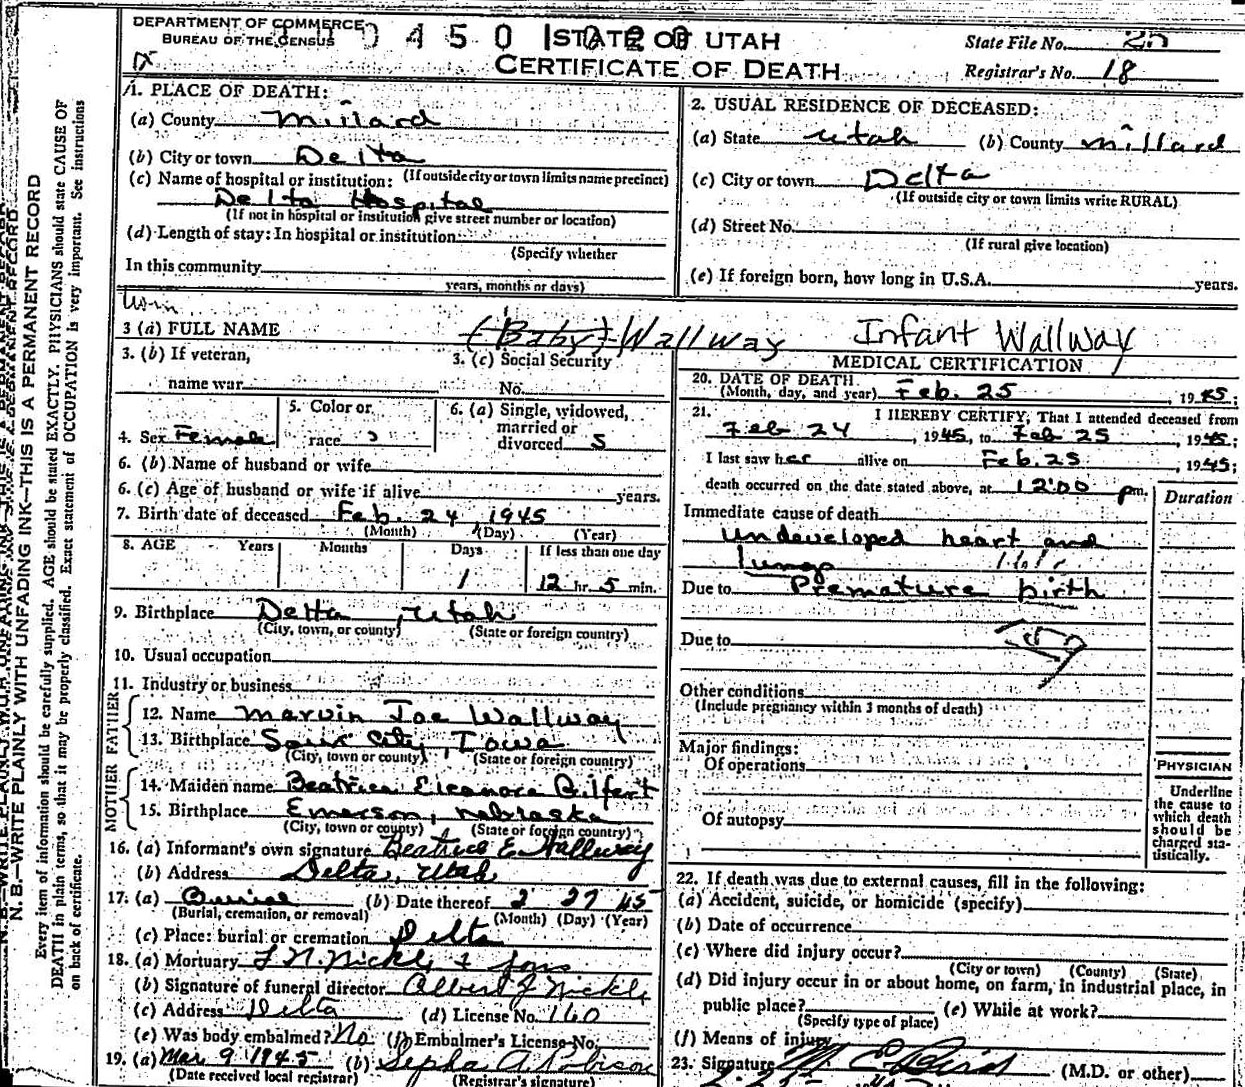 DEPARTMENT OF COMMERCE
BUREAU OF THE CENSUS
0 4 5 0
STATE OF UTAH
CERTIFICATE OF DEATH
State File No.
Registrar's No. 18
1. PLACE OF DEATH:
(a) County Millard
(b) City or town Delta
(If outside city or town limits name precinct)
(c) Name of hospital or institution:
Delta Hospital
(If not in hospital or institution give street number or location)
(d) Length of stay: In hospital or institution
(Specify whether
In this community
years, months or days)
2. USUAL RESIDENCE OF DECEASED:
(a) State Utah (b) County Millard
(c) City or town Delta
(If outside city or town limits write RURAL)
(d) Street No.
(If rural give location)
(e) If foreign born, how long in U.S.A. years.
3 (a) FULL NAME (Baby) Wallway Infant Wallway
3. (b) If veteran,
name war
3. (c) Social Security
No.
4. Sex Female
5. Color or
race
6. (a) Single, widowed,
married or
divorced S
6. (b) Name of husband or wife
6. (c) Age of husband or wife if alive years.
7. Birth date of deceased Feb. 24 1945
(Month) (Day) (Year)
8. AGE Years Months Days If less than one day
1 12 hr. 5 min.
9. Birthplace Delta, Utah
(City, town, or county) (State or foreign country)
10. Usual occupation
11. Industry or business
FATHER
12. Name Marvin Joe Wallway
13. Birthplace Soux City, Iowa
(City, town or county) (State or foreign country)
MOTHER
14. Maiden name Beatrice Eleanora Bilfert
15. Birthplace Emerson, Nebraska
(City, town or county) (State or foreign country)
16. (a) Informant's own signature Beatrice E Wallway
(b) Address Delta, Utah
17. (a) Burial (b) Date thereof 2 27 45
(Burial, cremation, or removal) (Month) (Day) (Year)
(c) Place: burial or cremation Delta
18. (a) Mortuary & Sons
(b) Signature of funeral director Albert J Nickle
(c) Address Delta (d) License No. 160
(e) Was body embalmed? No (f) Embalmer's License No.
19. (a) Mar 9 1945 (b) Sepha A Robison
(Date received local registrar) (Registrar's signature)
MEDICAL CERTIFICATION
20. DATE OF DEATH
(Month, day, and year) Feb. 25, 1945;
21. I HEREBY CERTIFY, That I attended deceased from
Feb 24, 1945, to Feb 25, 1945;
I last saw her alive on Feb. 25, 1945;
death occurred on the date stated above, at 12:00 pm.
Duration
Immediate cause of death
Undeveloped heart and
lungs
Due to Premature birth
Due to
Other conditions
(Include pregnancy within 3 months of death)
Major findings:
Of operations
Of autopsy
PHYSICIAN
Underline
the cause to
which death
should be
charged sta-
tistically.
22. If death was due to external causes, fill in the following:
(a) Accident, suicide, or homicide (specify)
(b) Date of occurrence
(c) Where did injury occur?
(City or town) (County) (State)
(d) Did injury occur in or about home, on farm, in industrial place, in
public place? (e) While at work?
(Specify type of place)
(f) Means of injury
23. Signature M E Bird (M.D. or other)
N. B.—WRITE PLAINLY WITH UNFADING INK—THIS IS A PERMANENT RECORD
Every item of information should be carefully supplied. AGE should be stated EXACTLY. PHYSICIANS should state CAUSE OF
DEATH in plain terms, so that it may be properly classified. Exact statement of OCCUPATION is very important. See instructions
on back of certificate.